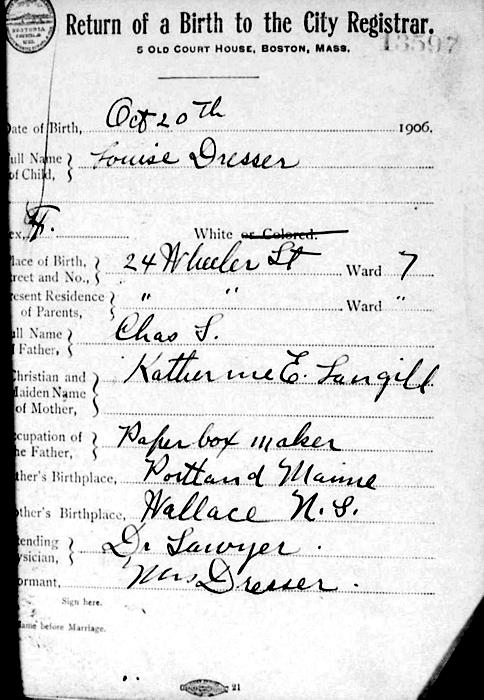 Return of a Birth to the City Registrar.
5 Old Court House, Boston, Mass.
13597
ate of Birth, Oct 20th 1906.
ull Name of Child, Louise Dresser
ex, F. White or Colored.
lace of Birth, treet and No., 24 Wheeler St Ward 7
resent Residence of Parents, " " Ward "
ull Name Father, Chas S.
hristian and aiden Name of Mother, Katherine E. Langill
ccupation of he Father, Paper box maker
ther's Birthplace, Portland Maine
other's Birthplace, Wallace N.S.
tending ysician, Dr Sawyer
ormant, Mrs Dresser
Sign here.
ame before Marriage.
21